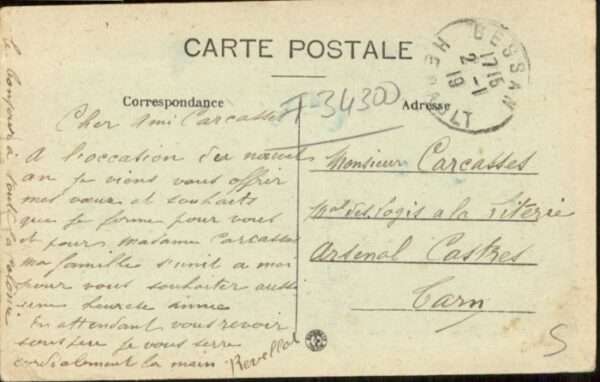 CARTE POSTALE
Correspondance
Adresse
34300
BESSAN
HERAULT
17 15
2 - 1
19
Cher Ami Carcasses
A l'occasion du nouvel
an je viens vous offrir
mes vœux et souhaits
que je forme pour vous
et pour Madame Carcasses
Ma famille s'unit a moi
pour vous souhaiter aussi
une heureuse année
En attendant vous revoir
sous peu je vous serre
cordialement la main
Revellat
le bonjour à toute la
Monsieur Carcasses
Mal des Logis a la Literie
Arsenal Castres
Tarn
5